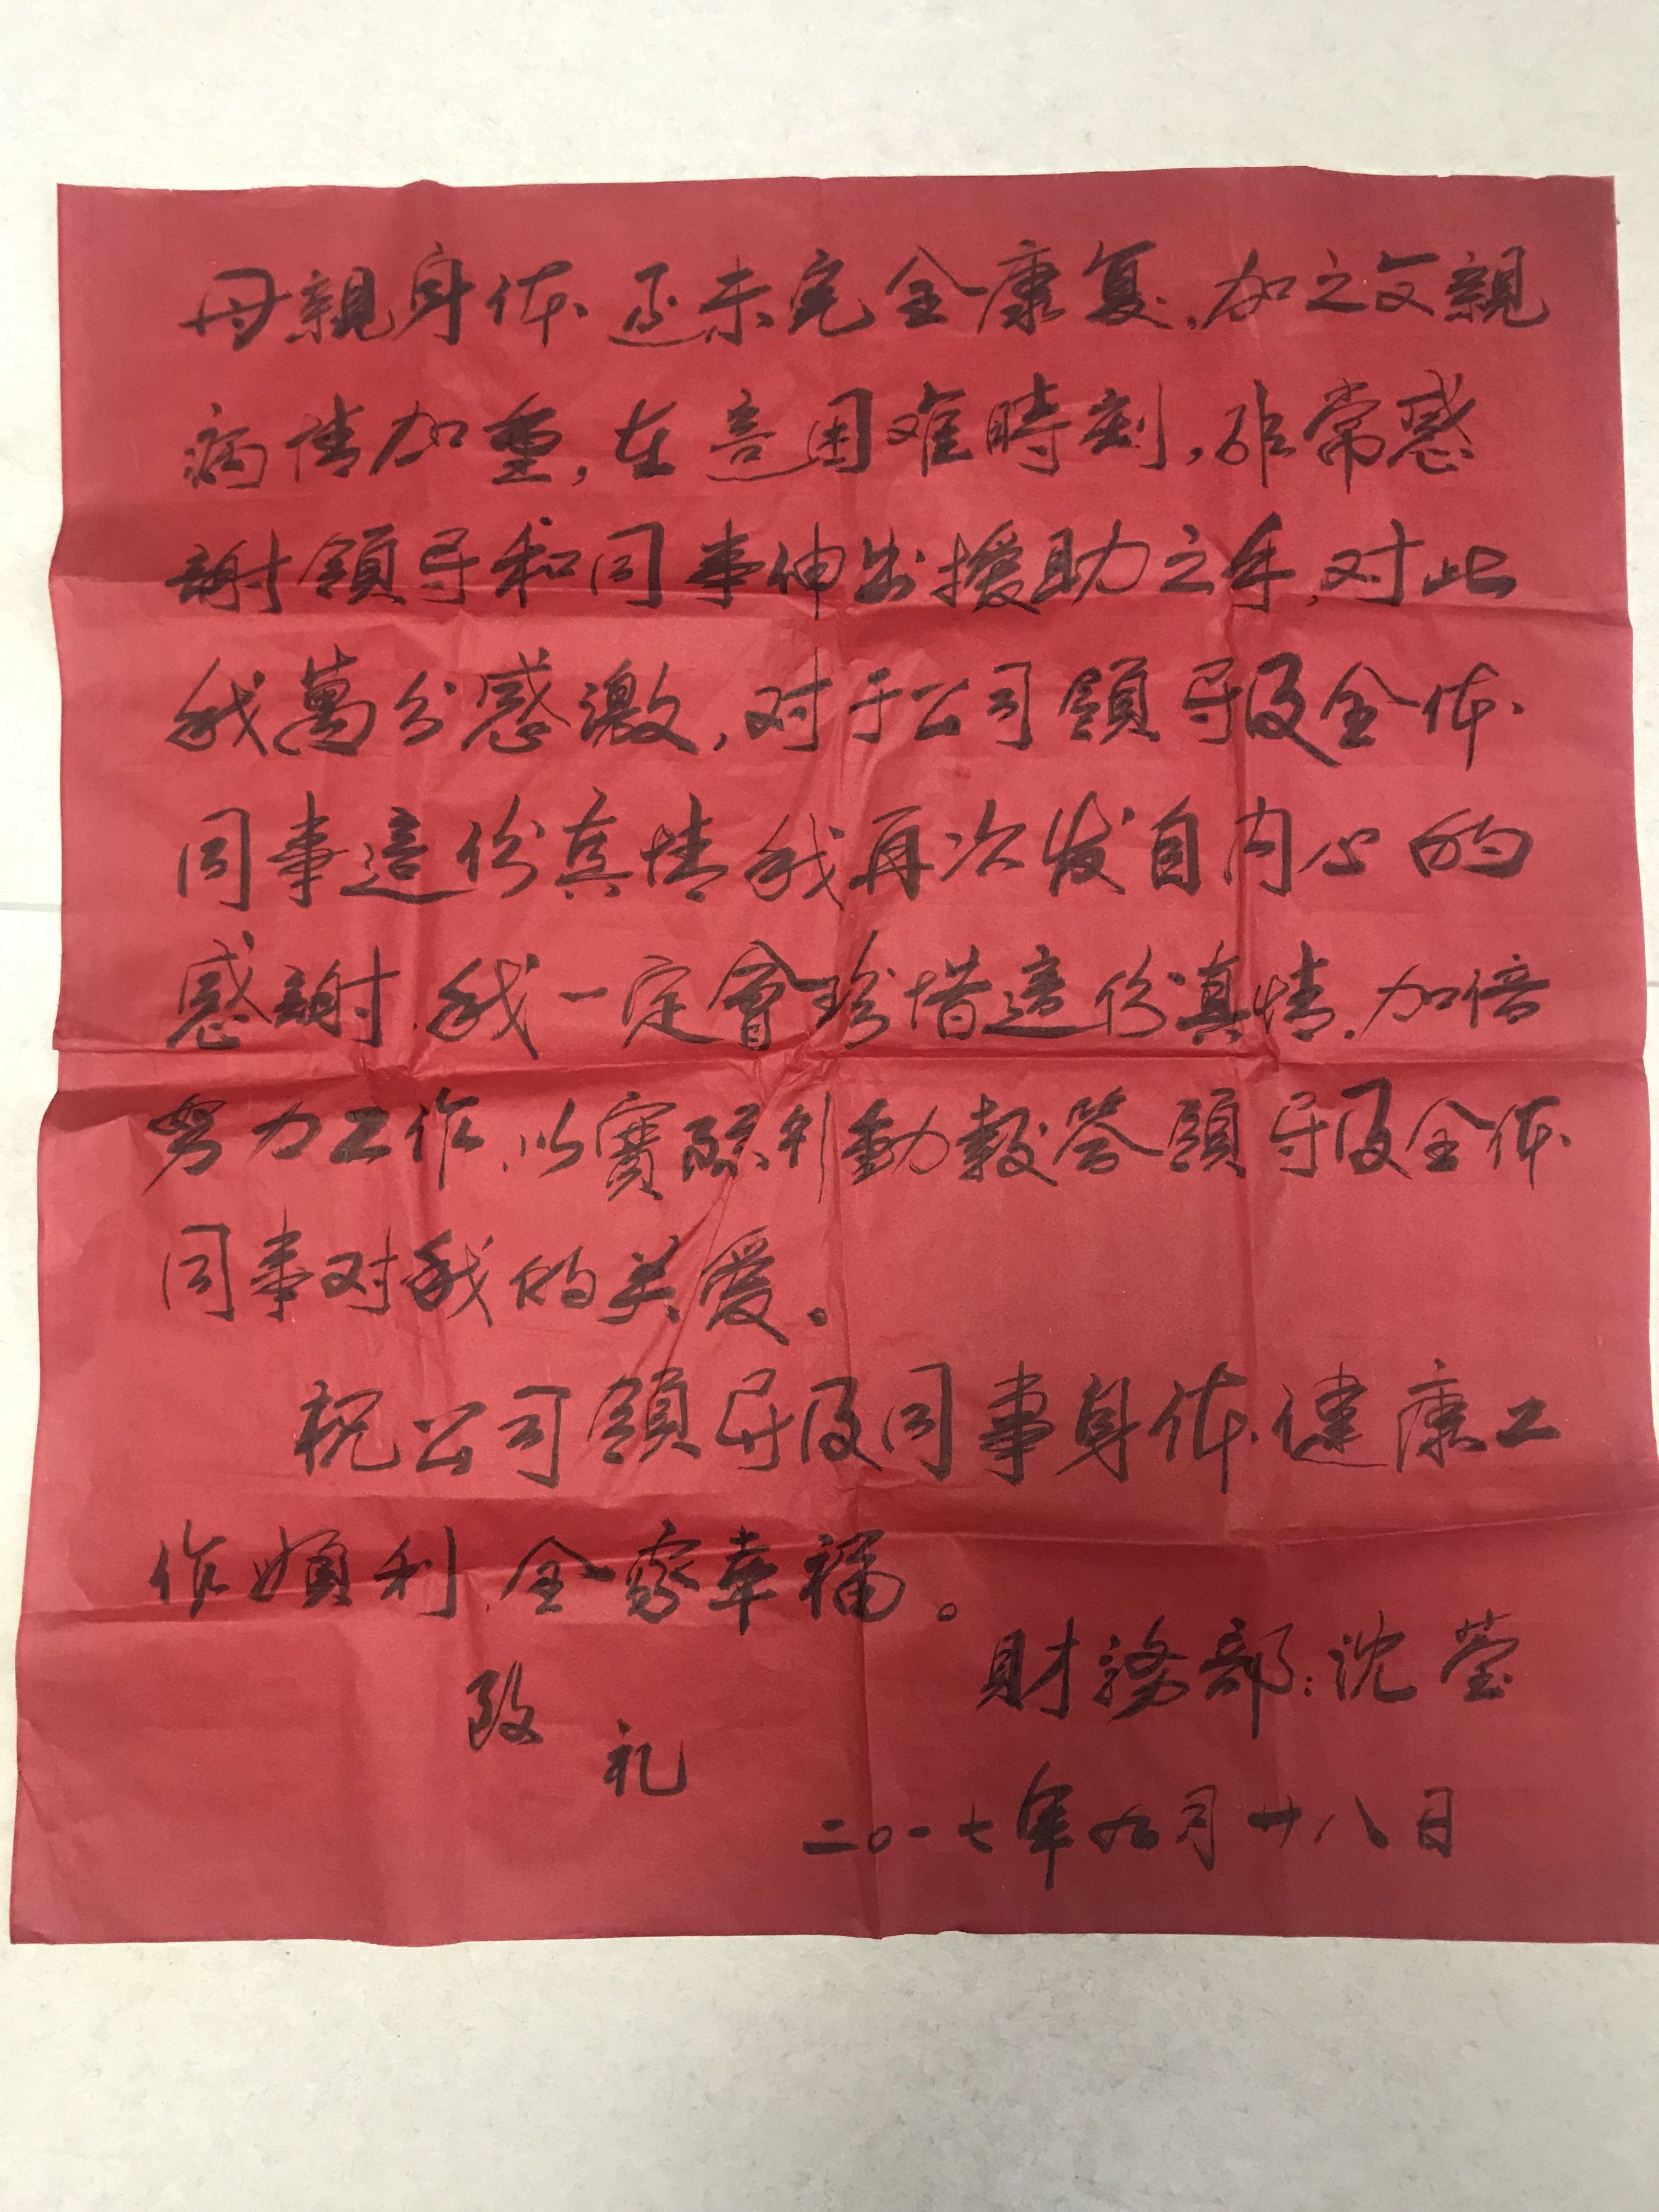 母親身体还未完全康复,加之父親
病情加重,在這困难時刻,非常感
謝領导和同事伸出援助之手,对此
我萬分感激,对于公司領导及全体
同事這份真情我再次发自内心的
感謝,我一定會珍惜這份真情,加倍
努力工作,以實際行動報答領导及全体
同事对我的关爱。
祝公司領导及同事身体健康工
作順利,全家幸福。
財務部:沈莹
致
礼
二〇一七年九月廿八日